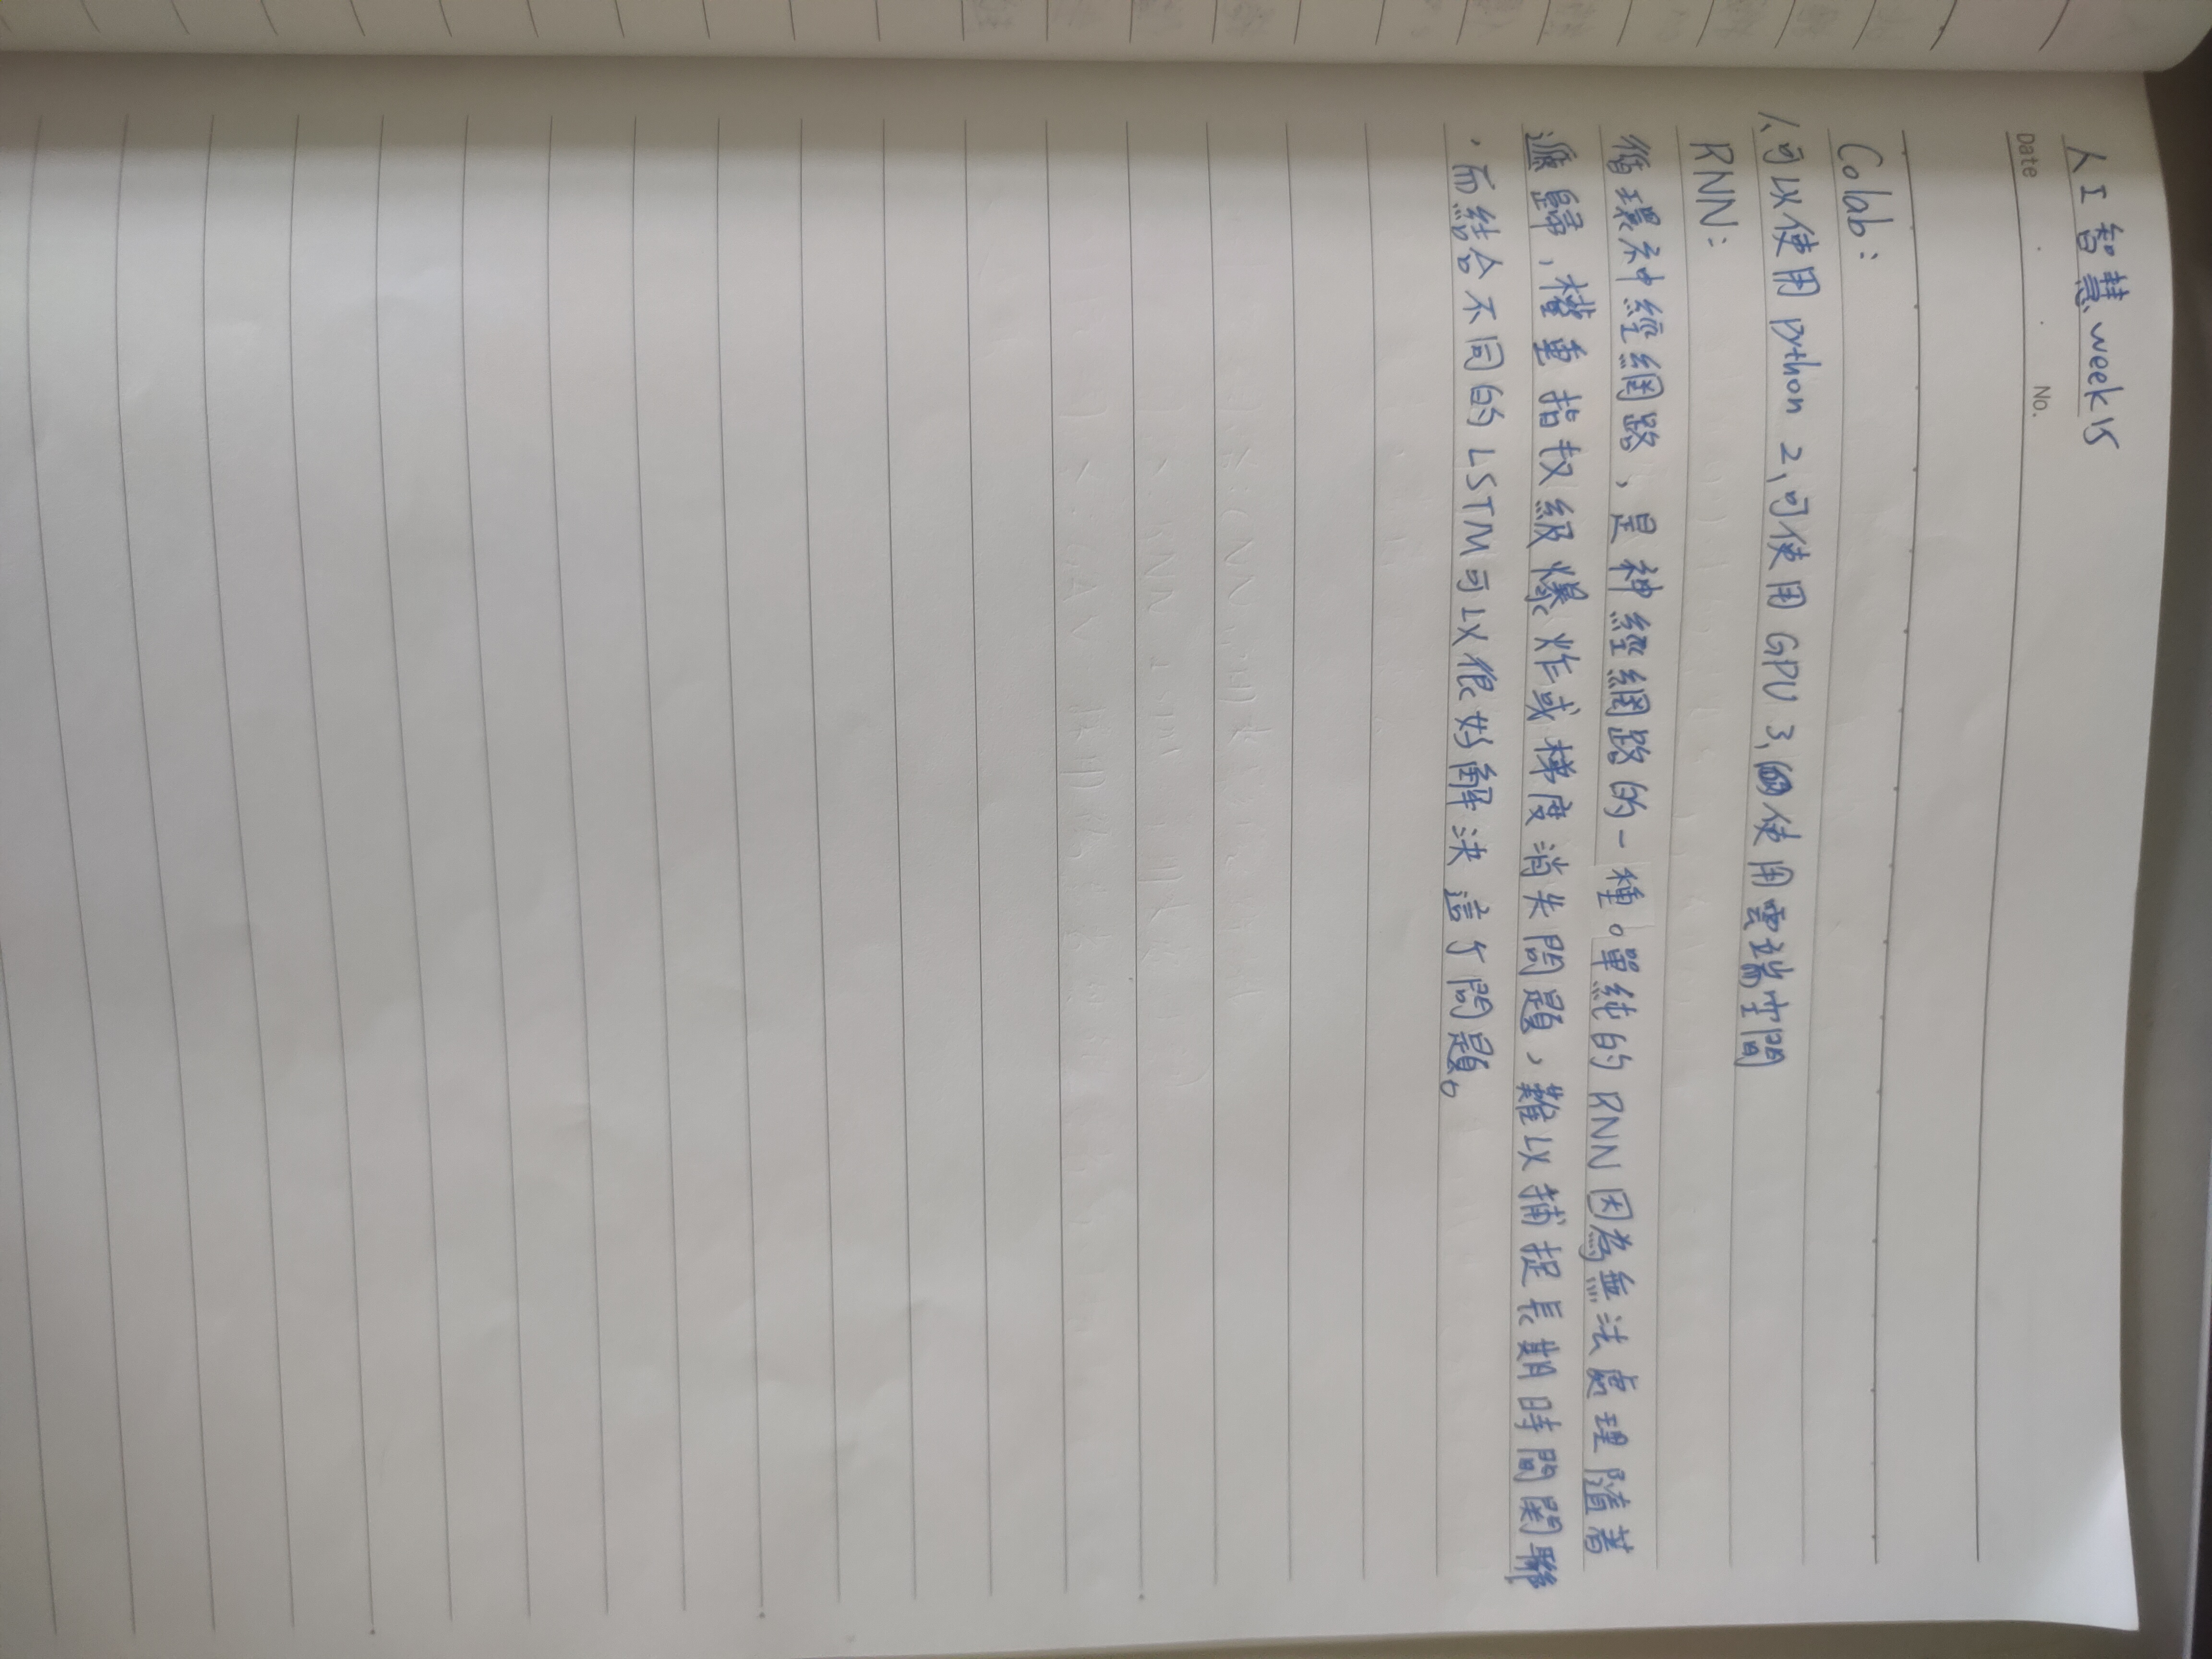 人工智慧week15
Date . . No.
Colab:
1、可以使用python 2、可使用GPU 3、使用雲端空間
RNN:
循環神經網路，是神經網路的一種。單純的RNN因為無法處理隨著
遞歸，權重指奴級爆炸或梯度消失問題，難以捕捉長期時間関聯
，而結合不同的LSTM可以很好解決這个問題。